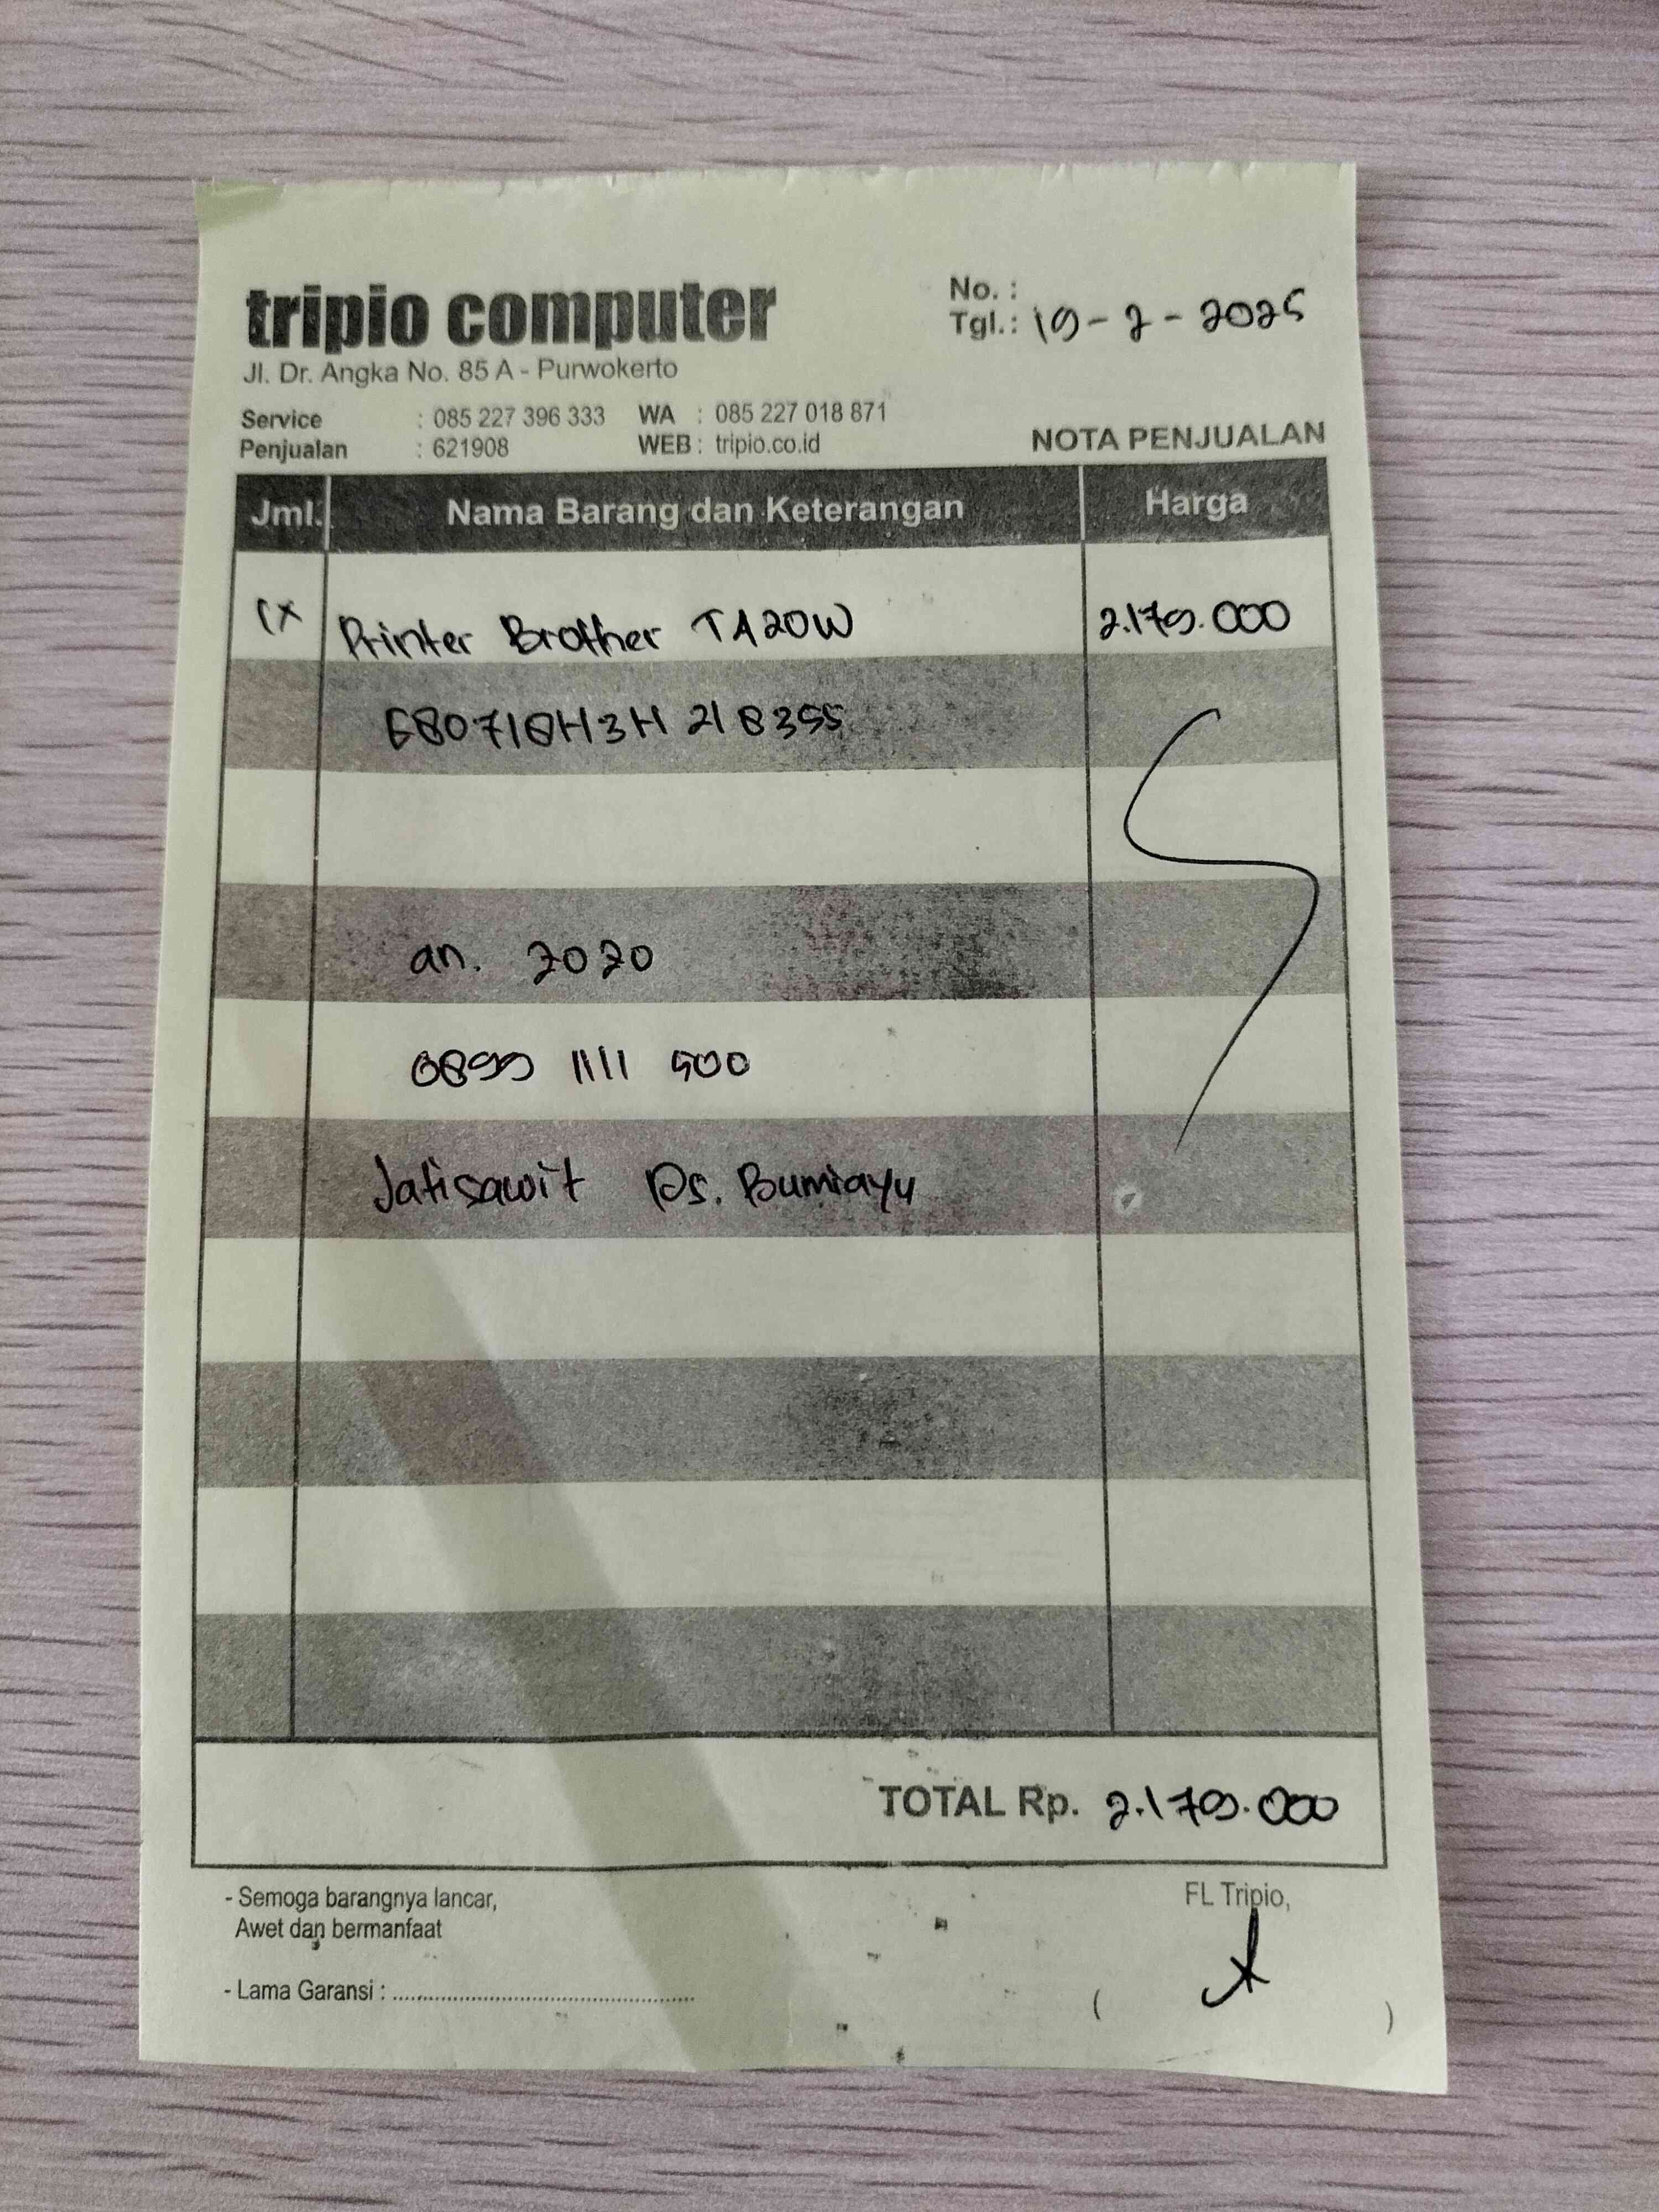 tripio computer
Jl. Dr. Angka No. 85 A - Purwokerto
No. :
Tgl.: 19-2-2025
Service : 085 227 396 333 WA : 085 227 018 871
Penjualan : 621908 WEB : tripio.co.id
NOTA PENJUALAN
Jml. Nama Barang dan Keterangan Harga
1x Printer Brother TA20W 2.179.000
E80718H3H218355
an. 2020
0899 1111 500
Jatisawit Ds. Bumiayu
TOTAL Rp. 2.179.000
- Semoga barangnya lancar,
Awet dan bermanfaat
FL Tripio,
- Lama Garansi : ..................................................
( )